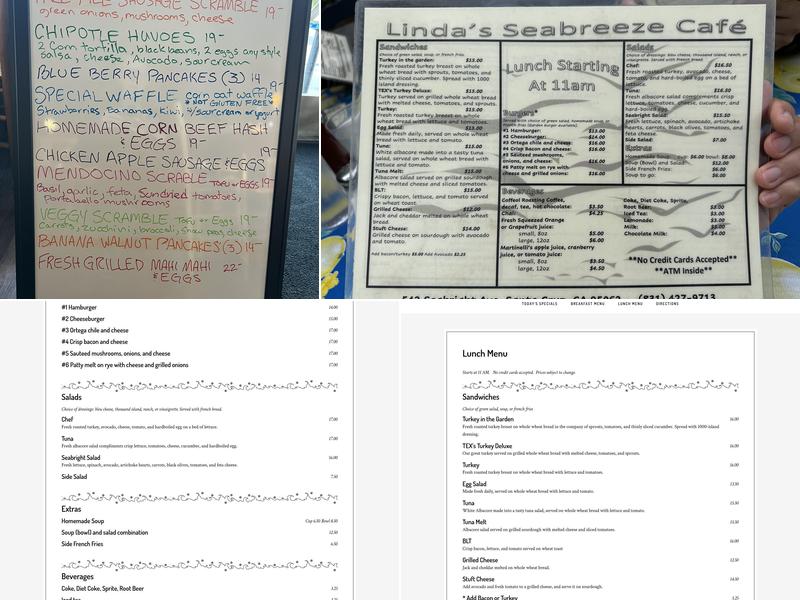 FREE MILE SCRAMBLE 19-
green onions, mushrooms, cheese
CHIPOTLE HUVOES 19-
2 Corn tortilla, black beans, 2 eggs any style
Salsa, cheese, Avocado, sour cream
BLUE BERRY PANCAKES (3) 14
SPECIAL WAFFLE corn oat waffle 19-
* NOT GLUTEN FREE*
Strawberries, Bananas, Kiwi, w/sour cream or yogurt
HOMEMADE CORN BEEF HASH
& EGGS 19-
CHICKEN APPLE SAUSAGE & EGGS
MENDOCINO SCRABLE TOFU or EGGS 19-
Basil, garlic, feta, Sundried tomatoes,
portabella mushrooms
VEGGY SCRAMBLE TOFU or Eggs 19-
Carrots, zucchini, broccoli, snow peas, cheese
BANANA WALNUT PANCAKES (3) 14-
FRESH GRILLED MAHI MAHI 22-
& EGGS
Linda's Seabreeze Café
Sandwiches
Choice of green salad, soup, or french fries.
Turkey in the garden: $15.00
Fresh roasted turkey breast on whole
wheat bread with sprouts, tomatoes, and
thinly sliced cucumber. Spread with 1000
island dressing.
TEX's Turkey Deluxe: $15.00
Turkey served on grilled whole wheat bread
with melted cheese, tomatoes, and sprouts.
Turkey: $15.00
Fresh roasted turkey breast on whole
wheat bread with lettuce and tomatoes.
Egg Salad:
Made fresh daily, served on whole wheat
bread with lettuce and tomato.
Tuna:
White albacore made into a tasty tuna
salad, served on whole wheat bread with
lettuce and tomato.
Tuna Melt:
Albacore salad served on grilled sourdough
with melted cheese and sliced tomatoes.
BLT: $15.00
Crispy bacon, lettuce, and tomato served
on wheat toast.
Grilled Cheese:
Jack and cheddar melted on whole wheat
bread.
Stuft Cheese: $14.00
Grilled cheese on sourdough with avocado
and tomato.
Add bacon/turkey $3.00 Add Avocado $2.25
Lunch Starting
At 11am
Burgers*
#1 Hamburger: $13.00
#2 Cheeseburger: $14.00
#3 Ortega chile and cheese: $16.00
#4 Crisp Bacon and cheese: $16.00
#5 Sauteed mushrooms,
onions, and cheese: $16.00
#6 Patty melt on rye with cheese
and grilled onions: $16.00
Salads
Choice of dressings: blue cheese, thousand island, ranch, or
vinaigrette. Served with French bread.
Chef: $16.50
Fresh roasted turkey, avocado, cheese,
tomato, and hard-boiled egg on a bed of
lettuce.
Tuna: $16.50
Fresh albacore salad complements crisp
lettuce, tomatoes, cheese, cucumber, and
hard-boiled egg.
Seabright Salad: $15.50
Fresh lettuce, spinach, avocado, artichoke
hearts, carrots, black olives, tomatoes, and
feta cheese
Side Salad $7.00
Extras
Homemade Soup cup: $6.00 bowl: $8.00
Soup (bowl) and Salad: $12.00
Side French Fries: $6.00
Soup to go: $6.00
Beverages
Coffee: Roasting Coffee,
decaf, tea, hot chocolate: $3.50
Chai: $4.25
Fresh Squeezed Orange
or Grapefruit juice:
small, 8oz $5.00
large, 12oz $6.00
Martinelli's apple juice, cranberry
juice, or tomato juice:
small, 8oz $3.50
large, 12oz $4.50
Coke, Diet Coke, Sprite,
Root Beer:
Iced Tea: $3.00
Lemonade:
Milk: $3.00
Chocolate Milk: $4.00
**No Credit Cards Accepted**
**ATM Inside**
542 Seabright Ave. Santa Cruz, CA 95062 (831) 427-9713
#1 Hamburger 14.00
#2 Cheeseburger 15.00
#3 Ortega chile and cheese 17.00
#4 Crisp bacon and cheese 17.00
#5 Sauteed mushrooms, onions, and cheese 17.00
#6 Patty melt on rye with cheese and grilled onions 17.00
Salads
Choice of dressings: bleu cheese, thousand island, ranch, or vinaigrette. Served with french bread.
Chef 17.00
Fresh roasted turkey, avocado, cheese, tomato, and hardboiled egg on a bed of lettuce.
Tuna 17.00
Fresh albacore salad compliments crisp lettuce, tomatoes, cheese, cucumber, and hardboiled egg.
Seabright Salad 16.00
Fresh lettuce, spinach, avocado, artichoke hearts, carrots, black olives, tomatoes, and feta cheese.
Side Salad 7.50
Extras
Homemade Soup Cup 6.50 Bowl 8.50
Soup (bowl) and salad combination 12.50
Side French Fries 6.50
Beverages
Coke, Diet Coke, Sprite, Root Beer 3.25
TODAY'S SPECIALS BREAKFAST MENU LUNCH MENU DIRECTIONS
Lunch Menu
Starts at 11 AM. No credit cards accepted. Prices subject to change.
Sandwiches
Choice of green salad, soup, or french fries
Turkey in the Garden 16.00
Fresh roasted turkey breast on whole wheat bread in the company of sprouts, tomatoes, and thinly sliced cucumber. Spread with 1000-island
dressing.
TEX's Turkey Deluxe 16.00
Our great turkey served on grilled whole wheat bread with melted cheese, tomatoes, and sprouts.
Turkey 16.00
Fresh roasted turkey breast on whole wheat bread with lettuce and tomatoes.
Egg Salad 13.50
Made fresh daily, served on whole wheat bread with lettuce and tomato.
Tuna 15.50
White Albacore made into a tasty tuna salad, served on whole wheat bread with lettuce and tomato.
Tuna Melt 15.50
Albacore salad served on grilled sourdough with melted cheese and sliced tomatoes.
BLT 16.00
Crispy bacon, lettuce, and tomato served on wheat toast
Grilled Cheese 12.50
Jack and cheddar melted on whole wheat bread.
Stuft Cheese 14.50
Add avocado and fresh tomato to a grilled cheese, and serve it on sourdough.
* Add Bacon or Turkey 3.25